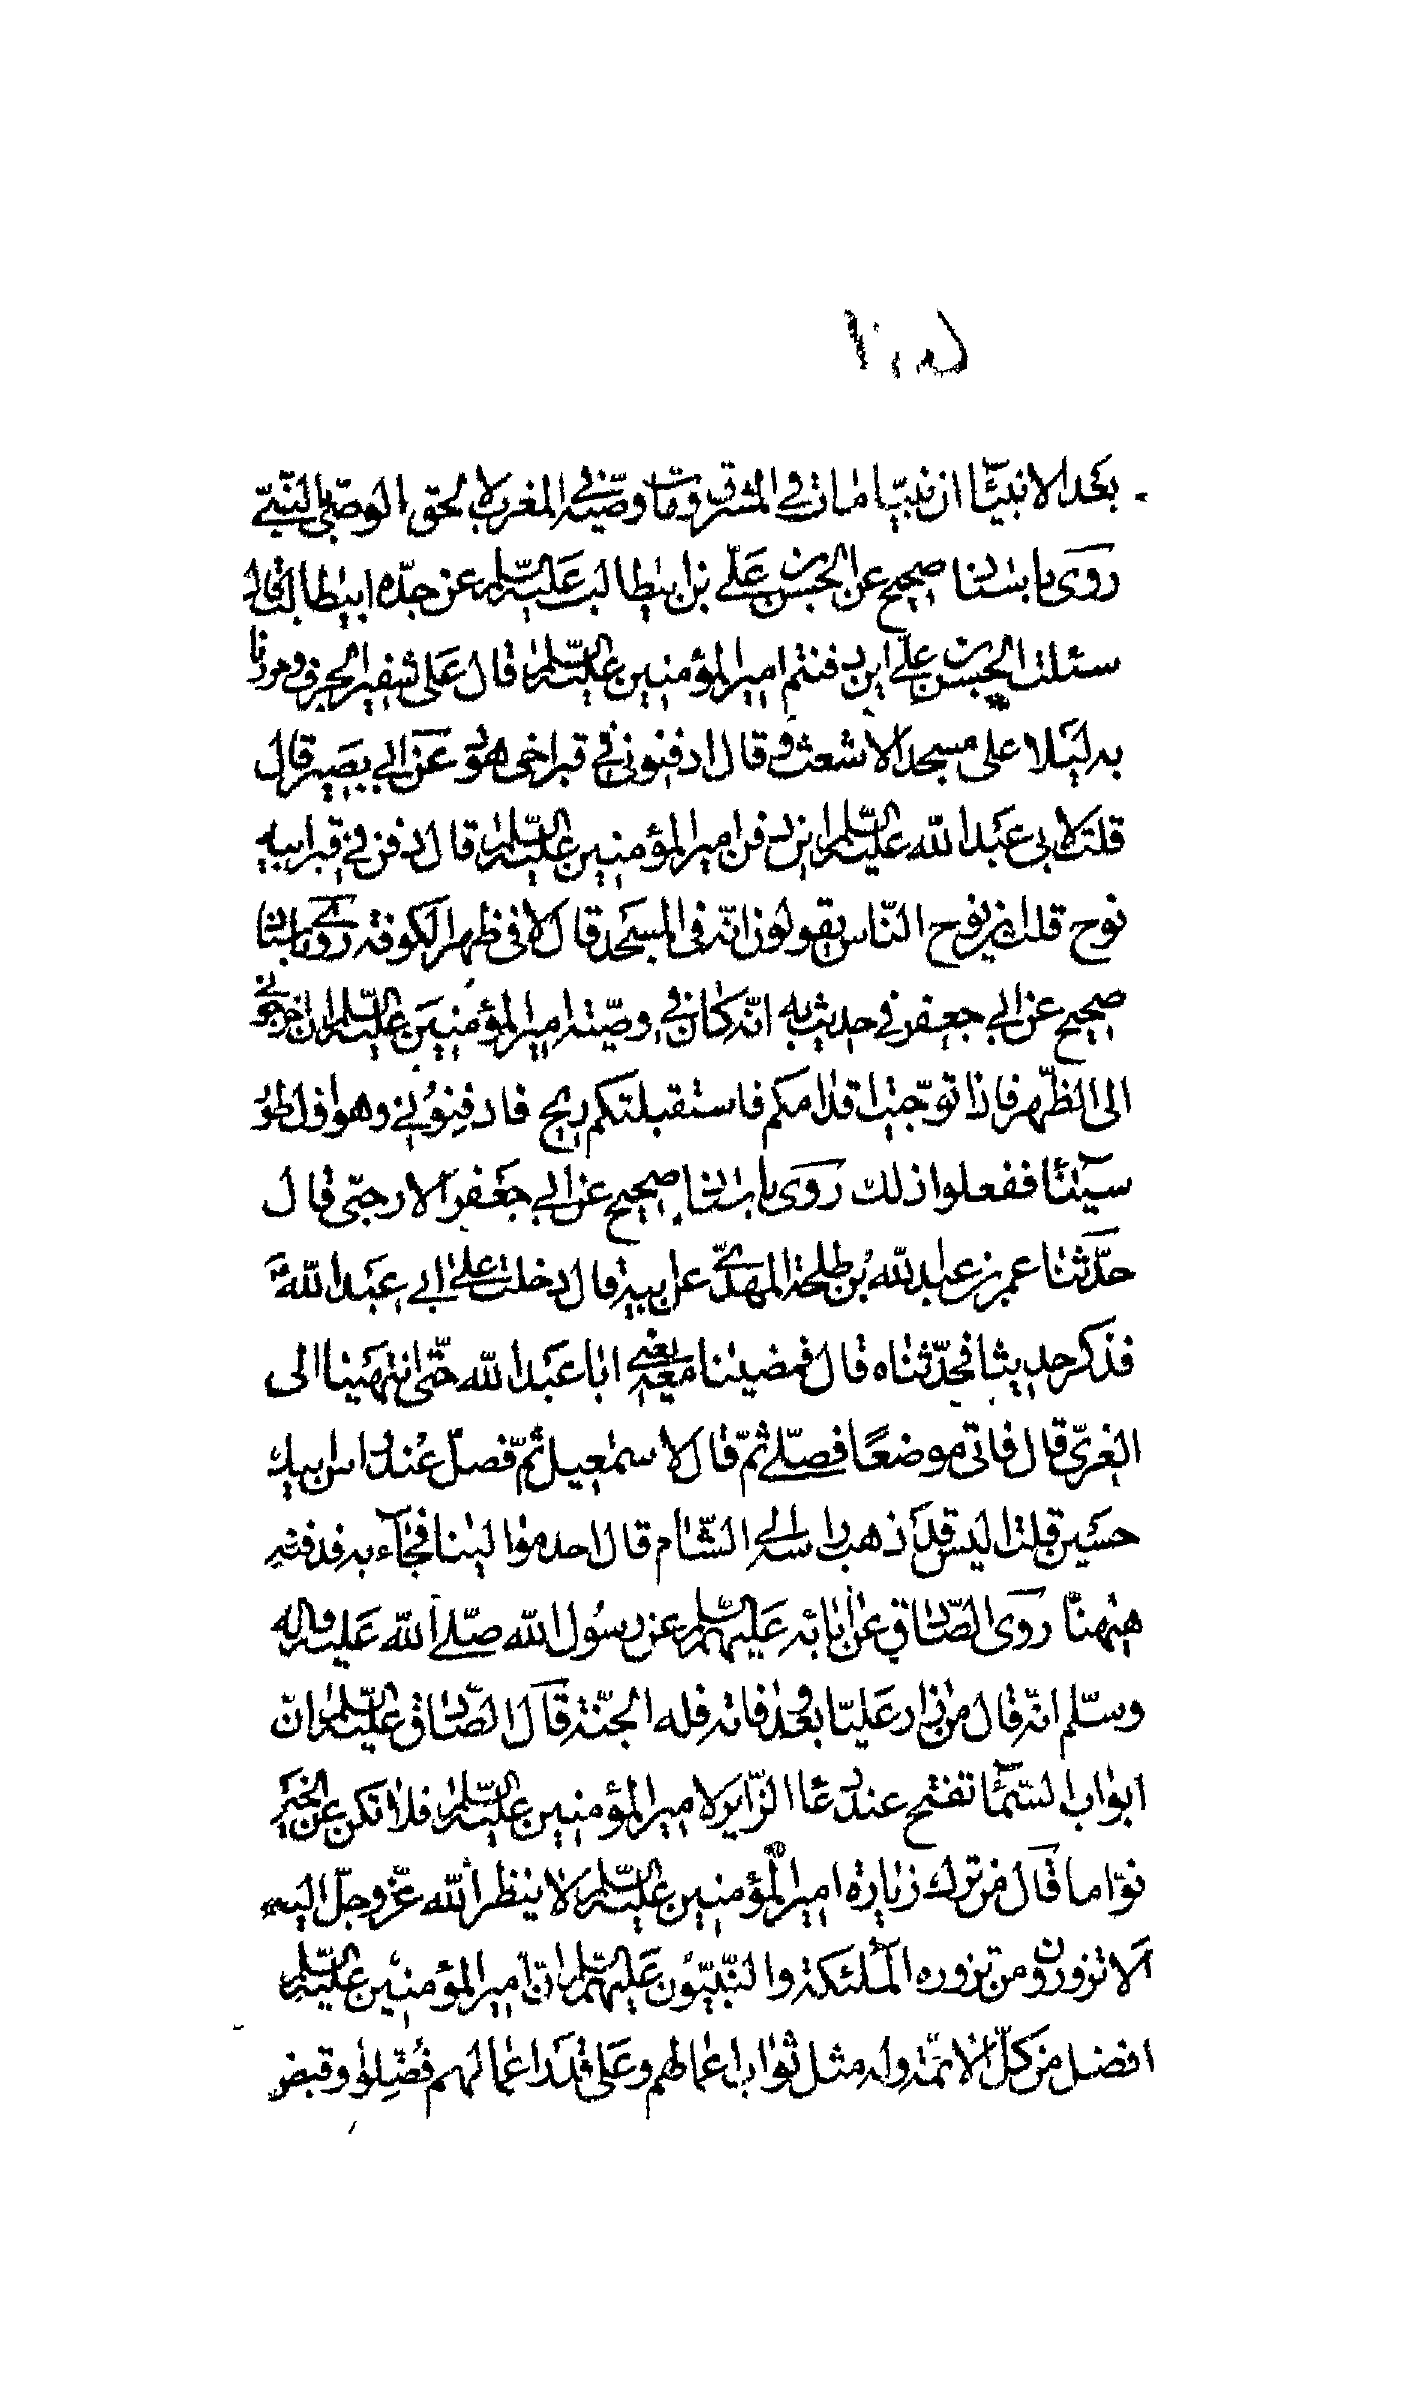 بعد الانبياء ان نبيّا مات في المشرق ومات وصيّه في المغرب لالحق الوصي بالنبيّ
روى باسنادنا صحيح عن الحسن بن علي بن ابيطالب عليه السّلم عن جدّه ابيطالب قال
سئلت الحسن بن علي اين دفنتم امير المؤمنين عليه السّلم قال على شفير الجرف ومررنا
به ليلا على مسجد الاشعث وقال ادفنوني في قبر اخى هود عن ابي بصير قال
قلت لابى عبد الله عليه السّلم اين دفن امير المؤمنين عليه السّلم قال دفن في قبر ابيه
نوح قلت اين نوح النّاس يقولون انّه فى المسجد قال لا فى ظهر الكوفة روى باسنادنا
صحيح عن ابي جعفر في حديث به انّه كان في وصيّة امير المؤمنين عليه السّلم ان اخرجوني
الى الظّهر فاذا توجّهت اقدامكم فاستقبلتكم ريح فادفنوني وهو اوّل طور
سيناء ففعلوا ذلك روى باسنادنا صحيح عن ابي جعفر الارجنى قال
حدّثنا عمر بن عبد لله بن طلحة المهدي عن ابيه قال دخلت على ابي عبد الله
فذكر حديثا فحدّثناه قال فمضينا معه يعنى ابا عبد الله حتّى انتهينا الى
الغرىّ قال فاتى موضعًا فصلّى ثمّ قال لاسمعيل ثمّ فصلّ عند راس ابيك
حسين قلت اليس قد ذهب براسه الى الشّام قال احد موالينا فجآء به فدفنه
هيهنا روى الصّادق عن ابائه عليهم السّلم عن رسول الله صلّى الله عليه واله
وسلّم انّه قال من زار عليّا بعد وفاته فله الجنّة قال الصّادق عليه السّلم ان
ابواب السّماء تفتح عند دعاء الزّاير لامير المؤمنين عليه السّلم فلا تكن عن الخير
نوّاما قال من ترك زيارة امير المؤمنين عليه السّلم لا ينظر الله عزّ وجلّ اليه
الا تزورون من تزوره الملئكة والنّبيّون عليهم السّلم ان امير المؤمنين عليه السّلم
افضل من كلّ الائمّة وله مثل ثواب اعمالهم وعلى قدر اعمالهم فضّلوا وقبض